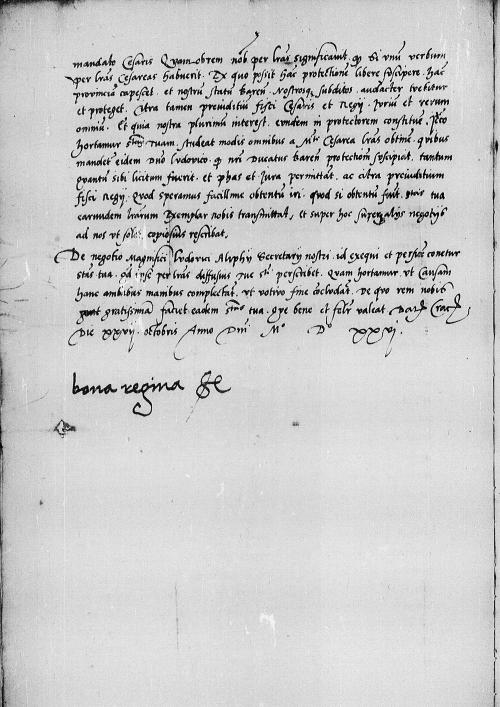 mandato Cesaris Quam obrem nob per lras significavit, q Si unu verbum
per lras Cesareas habuerit. Ex quo possit hac protectione libere suscipere. hac
provincia capescet. et nostru statu Baren Nostrosq subditos. audacter
et proteget. Citra tamen preiuditiu fisci Cesaris et Regij. Juriu et rerum
omniu. Et quia nostra plurimu interest. eundem in protectorem constitui.
hortamur Stm Tuam. studeat modis omnibus a Mte Cesarea lras obtine. quibus
mandet eidem Dno Ludovico. q nri Ducatus Baren protectione suscipiat. tantum
quantu sibi licitum fuerit. et phas et Jura permittat. ac citra preiuditium
fisci Regij. Quod speramus facillime obtentu iri. quod si obtentu fuit. tua
earumdem lrarum Exemplar nobis transmittat, et super hoc super alijs negotijs
ad nos ut solet copiosius rescribat.
De negotio Magnifici Ludovici Alyphij Secretarij nostri. id exequi et perficere conetur
stas tua. qd ipse per lras diffusius sti perscribet. Quam hortamur. ut Causam
hanc ambibus manibus complectat. ut votivo fine cocludat. De quo rem nobis
gratissima faciet eadem Stas tua. Que bene et felr valeat Dat Crac
Die XXVij. octobris Anno Dni Mo Do XXXj.
bona regina